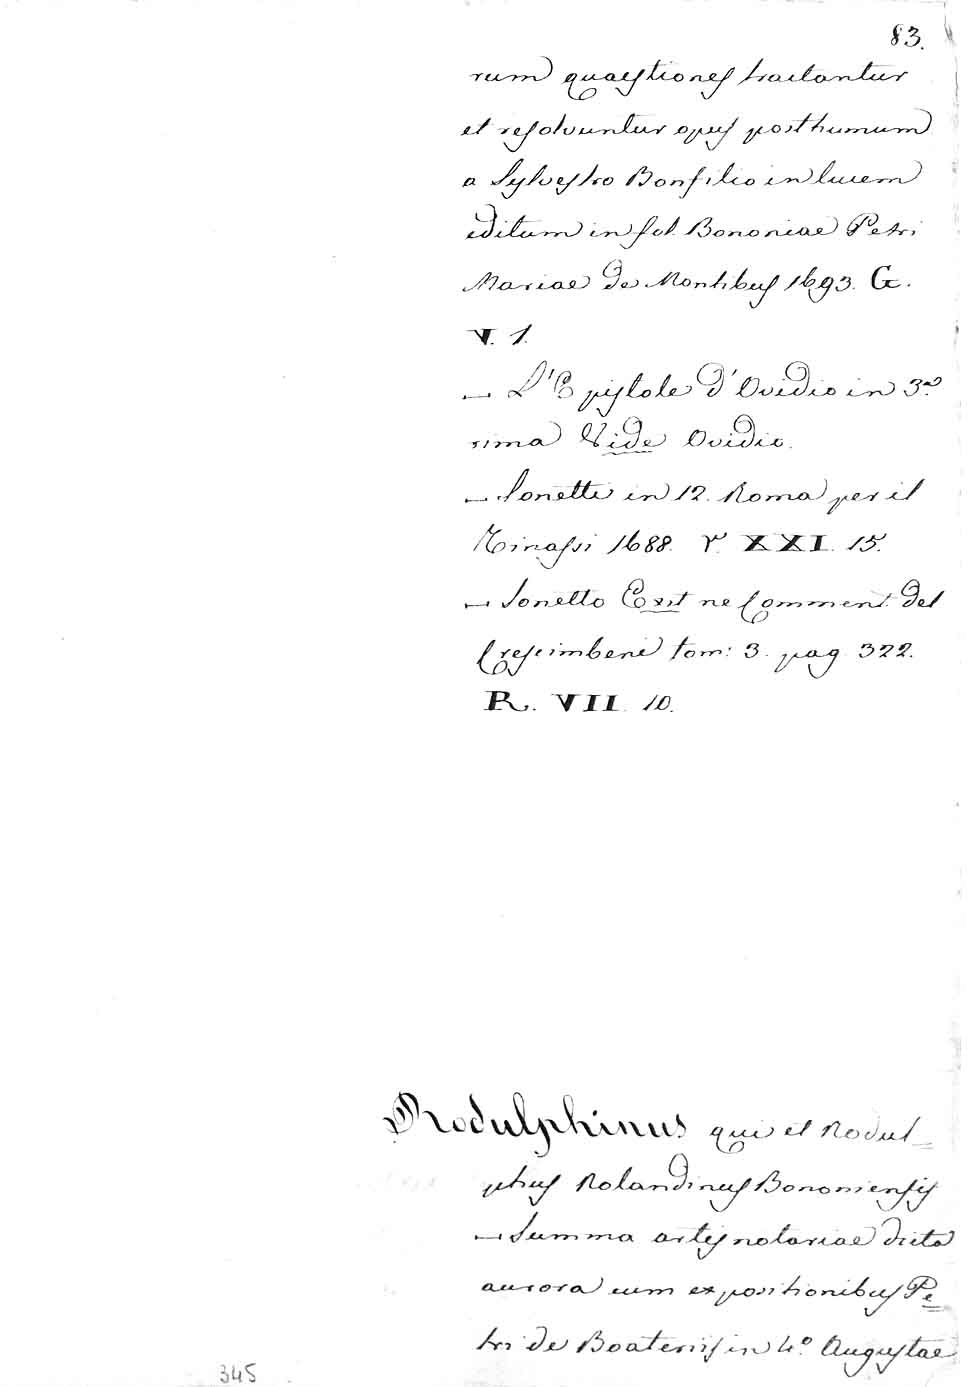 83.
rum quaestiones tractantur
et resolvuntur opus posthumum
a Sylvestro Bonfilio in lucem
editum in fol. Bononiae Petri
Mariae de Montibus 1693. G.
V. 1.
— L'Epistole d'Ovidio in 3.a
rima Vide Ovidio.
— Sonetti in 12. Roma per il
Tinassi 1688. Y. XXI. 15.
— Sonetto Exst ne Comment. del
Crescimbeni tom: 3. pag. 322.
R. VII. 10.
Rodulphinus qui et Rodul=
phus Rolandinus Bononiensis
— Summa artis notariae dicta
aurora cum expositionibus Pe=
tri de Boateriis in 4.o Augustae
345